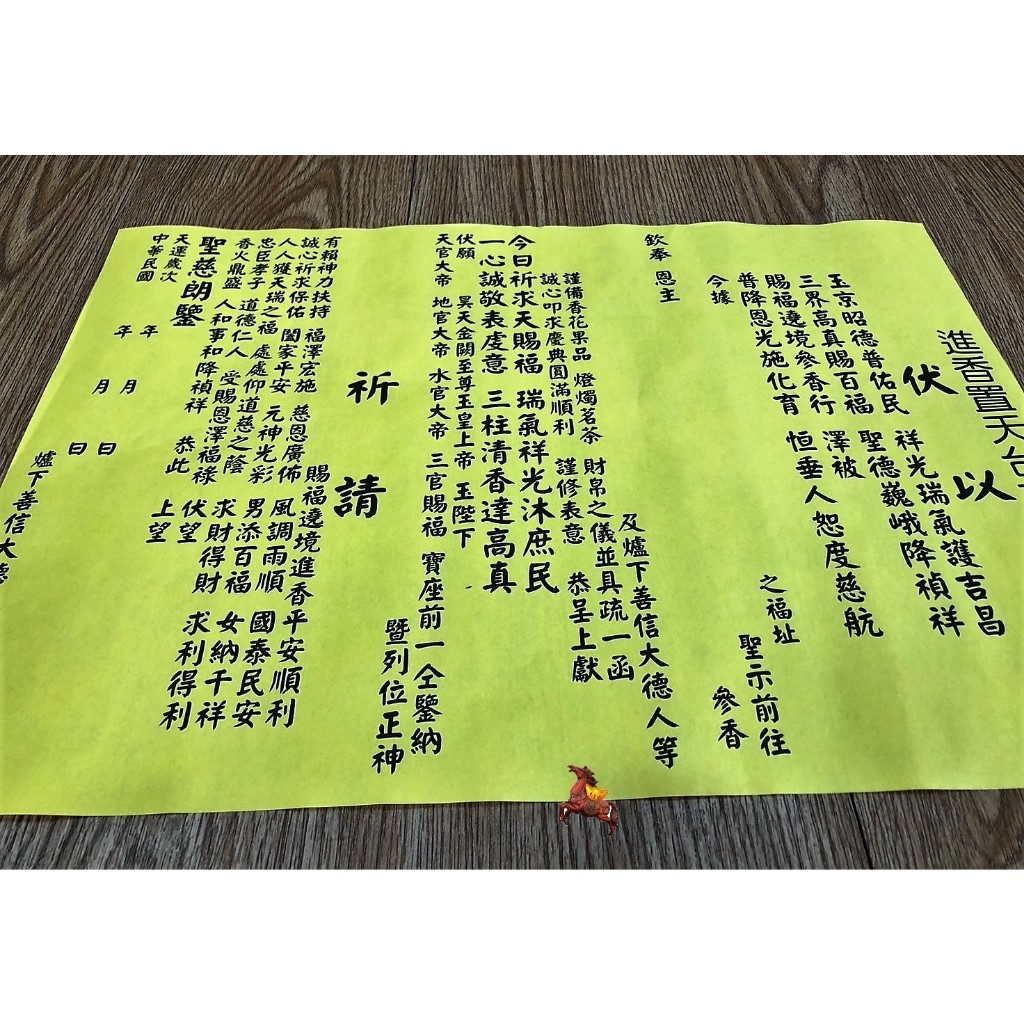 進香置天台
伏以
玉京昭德普佑民 祥光瑞氣護吉昌
三界高真賜百福 聖德巍峨降禎祥
賜福遶境參香行 澤被
普降恩光施化育 恒垂人恕度慈航
今據 之福址
聖示前往
參香
欽奉 恩主
及爐下善信大德人等
謹備香花果品 燈燭茗茶 財帛之儀並具疏一函
誠心叩求慶典圓滿順利 謹修表意 恭呈上獻
今日祈求天賜福 瑞氣祥光沐庶民
一心誠敬表虔意 三柱清香達高真
伏願 昊天金闕至尊玉皇上帝 玉陛下
天官大帝 地官大帝 水官大帝 三官賜福 寶座前一仝鑒納
暨列位正神
祈請
有賴神力扶持 福澤宏施 慈恩廣佈 賜福遶境進香平安順利
誠心祈求保佑 闔家平安 元神光彩 風調雨順 國泰民安
人人獲天瑞之福 處處仰道慈之蔭 男添百福 女納千祥
忠臣孝子 道德仁人 受賜恩澤福祿 求財得財 求利得利
香火鼎盛 人和事和降禎祥 恭此 伏望
上望
聖慈朗鑒
天運歲次 年 月 日
中華民國 年 月 日
爐下善信大德